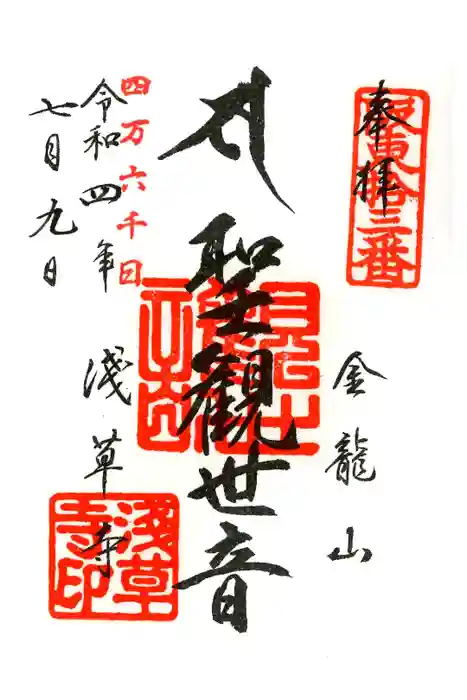 奉拝
坂東拾三番
金龍山
聖観世音
四万六千日
令和四年
七月九日
浅草寺
浅草寺印